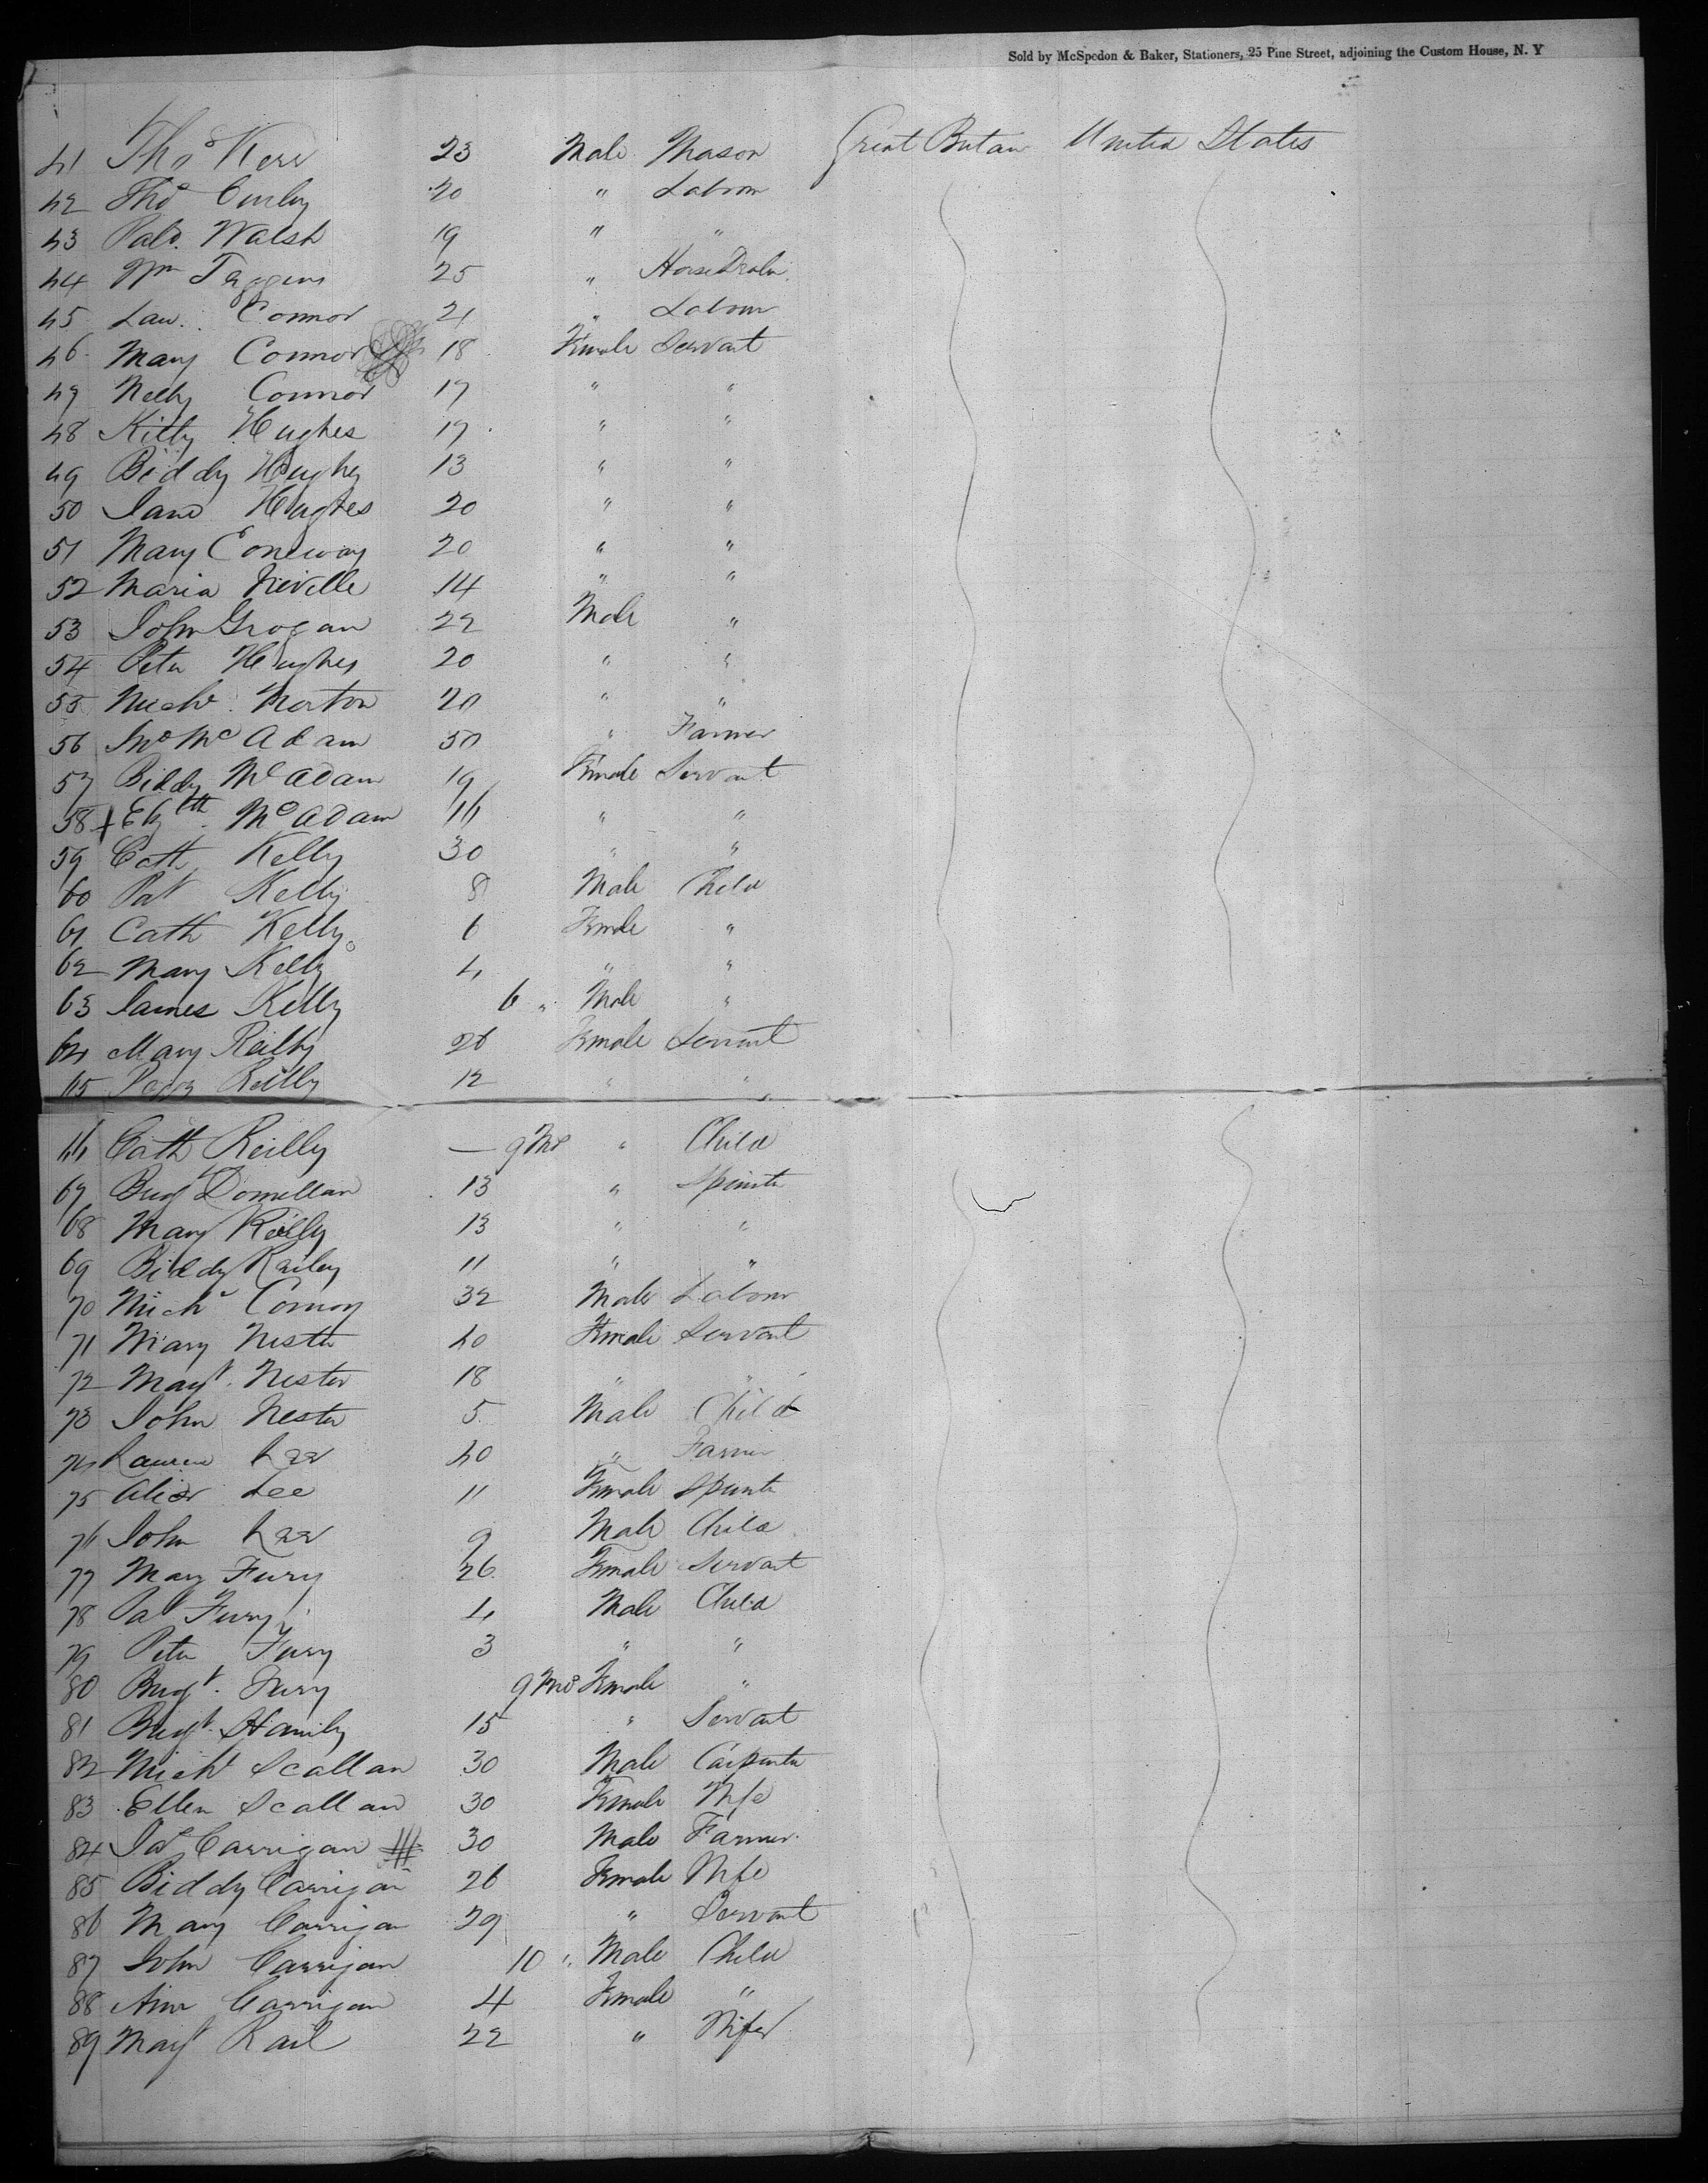 Sold by McSpedon & Baker, Stationers, 25 Pine Street, adjoining the Custom House, N. Y
41 Thos Kerr 23 Male Mason Great Britain United States
42 Thos Curley 20 " Labour
43 Patk. Walsh 19 " "
44 Wm Taggins 25 " Horse Dealer
45 Law. Connor 21 " Labour
46 Mary Connor 18 Female Servant
47 Nelly Connor 17 " "
48 Kitty Hughes 17 " "
49 Biddy Hughes 13 " "
50 Jane Hughes 20 " "
51 Mary Coneway 20 " "
52 Maria Neville 14 " "
53 John Grogan 22 Male "
54 Peter Hughes 20 " "
55 Michl. Norton 20 " "
56 Jno McAdam 50 " Farmer
57 Biddy McAdam 19 Female Servant
58 + Elizth McAdam 16 " "
59 Cath Kelly 30 " "
60 Pat Kelly 8 Male Child
61 Cath Kelly 6 Female "
62 Mary Kelly 4 " "
63 James Kelly 6 " Male "
64 Mary Reilly 26 Female Servant
65 Peggy Reilly 12 " "
66 Cath Reilly — 9 Mos " Child
67 Brigt Donnellan 13 " Spinster
68 Mary Reilly 13 " "
69 Biddy Railey 11 " "
70 Michl Conroy 32 Male Labour
71 Mary Nester 40 Female Servant
72 Magt. Nester 18 " "
73 John Nester 5 Male Child
74 Lee 40 " Farmer
75 Alice Lee 11 Female Spinster
76 John Lee 9 Male Child
77 Mary Fury 26 Female Servant
78 Pat Fury 4 Male Child
79 Peter Fury 3 " "
80 Brigt. Fury 9 Mos Female "
81 Brigt. Hanily 15 " Servant
82 Michl Scallan 30 Male Carpenter
83 Ellen Scallan 30 Female Wife
84 Carrigan 30 Male Farmer
85 Biddy Carrigan 26 Female Wife
86 Mary Carrigan 29 " Servant
87 John Carrigan 10 " Male Child
88 Ann Carrigan 4 Female "
89 Magt Rail 22 " Wife